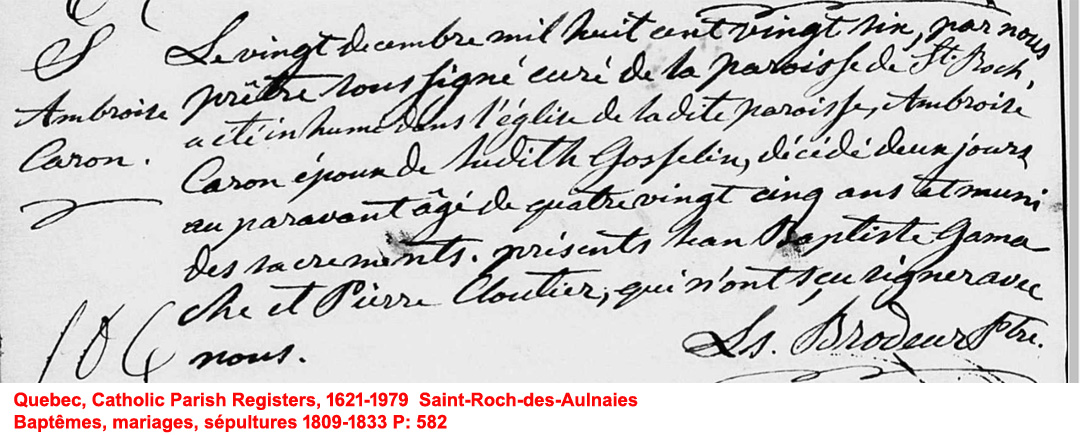 S
Ambroise
Caron.
Le vingt decembre mil huit cent vingt six, par nous
prêtre soussigné curé de la paroisse de St. Roch,
a été inhumé dans l'église de ladite paroisse, Ambroise
Caron époux de Judith Gosselin, décédé deux jours
au paravant âgé de quatre vingt cinq ans et muni
des sacrements. présents Jean Baptiste Gama
che et Pierre Cloutier, qui n'ont sçu signer avec
nous.
Ls. Brodeur Ptre.
Quebec, Catholic Parish Registers, 1621-1979 Saint-Roch-des-Aulnaies
Baptêmes, mariages, sépultures 1809-1833 P: 582